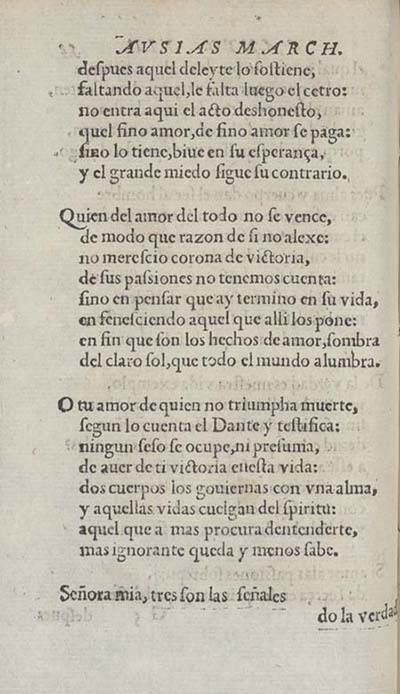 AVSIAS MARCH.
despues aquel deleyte lo sostiene,
faltando aquel, le falta luego el cetro:
no entra aqui el acto deshonesto,
quel fino amor, de fino amor se paga:
sino lo tiene, biue en su esperança,
y el grande miedo sigue su contrario.
Quien del amor del todo no se vence,
de modo que razon de si no alexe:
no merescio corona de victoria,
de sus passiones no tenemos cuenta:
sino en pensar que ay termino en su vida,
en fenesciendo aquel que alli los pone:
en fin que son los hechos de amor, sombra
del claro sol, que todo el mundo alumbra.
O tu amor de quien no triumpha muerte,
segun lo cuenta el Dante y testifica:
ningun seso se ocupe, ni presuma,
de auer de ti victoria enesta vida:
dos cuerpos los gouiernas con vna alma,
y aquellas vidas cuelgan del spiritu:
aquel que a mas procura dentenderte,
mas ignorante queda y menos sabe.
Señora mia, tres son las señales
do la verdad